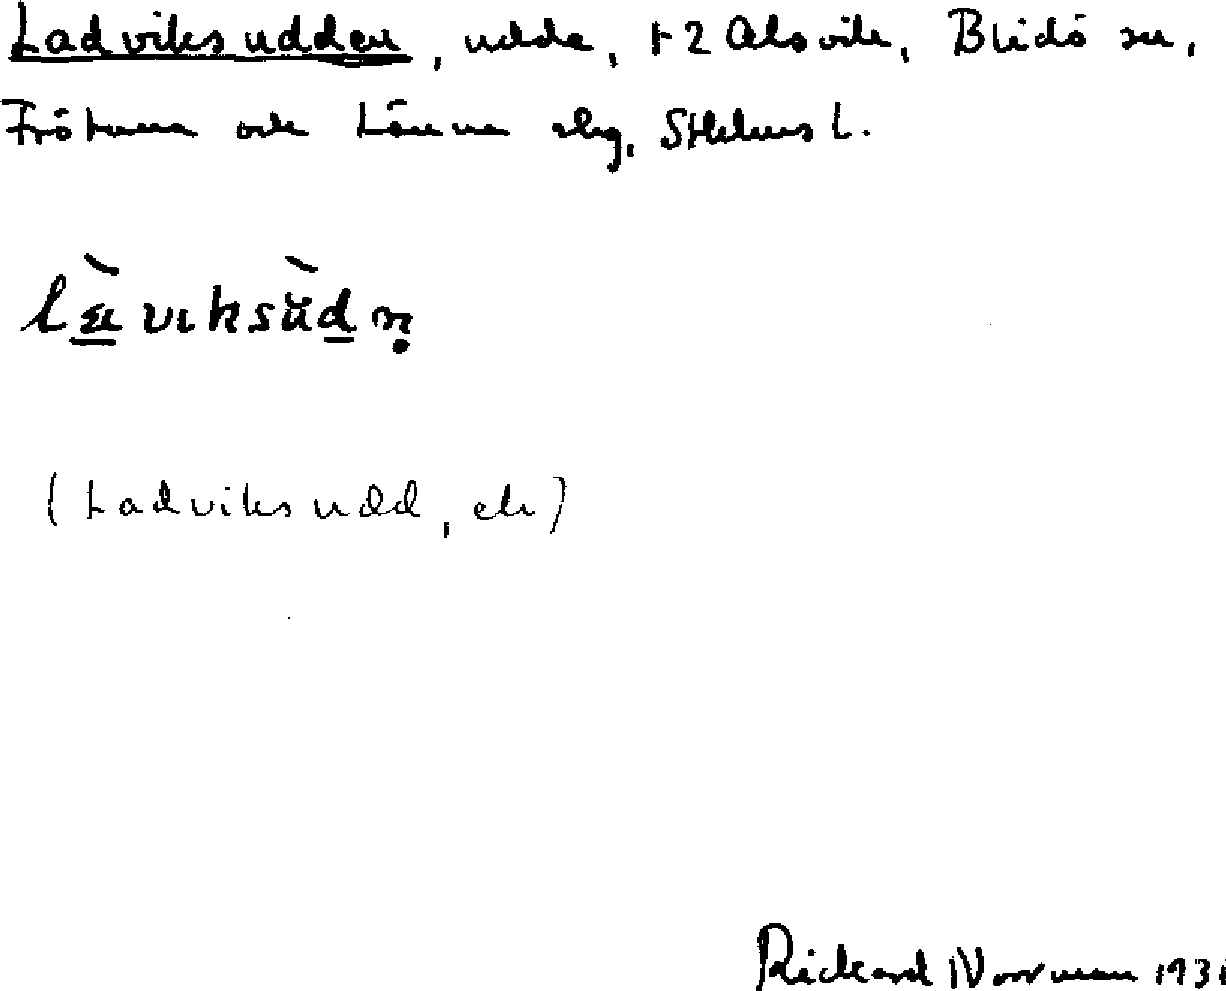 Ladviksudden, udde, 1-2 Alsvik, Blidö sn,
Frötuna och Länna slg, Sthlms l.
(Ladviksudd, ek)
Rickard Norrman 1931